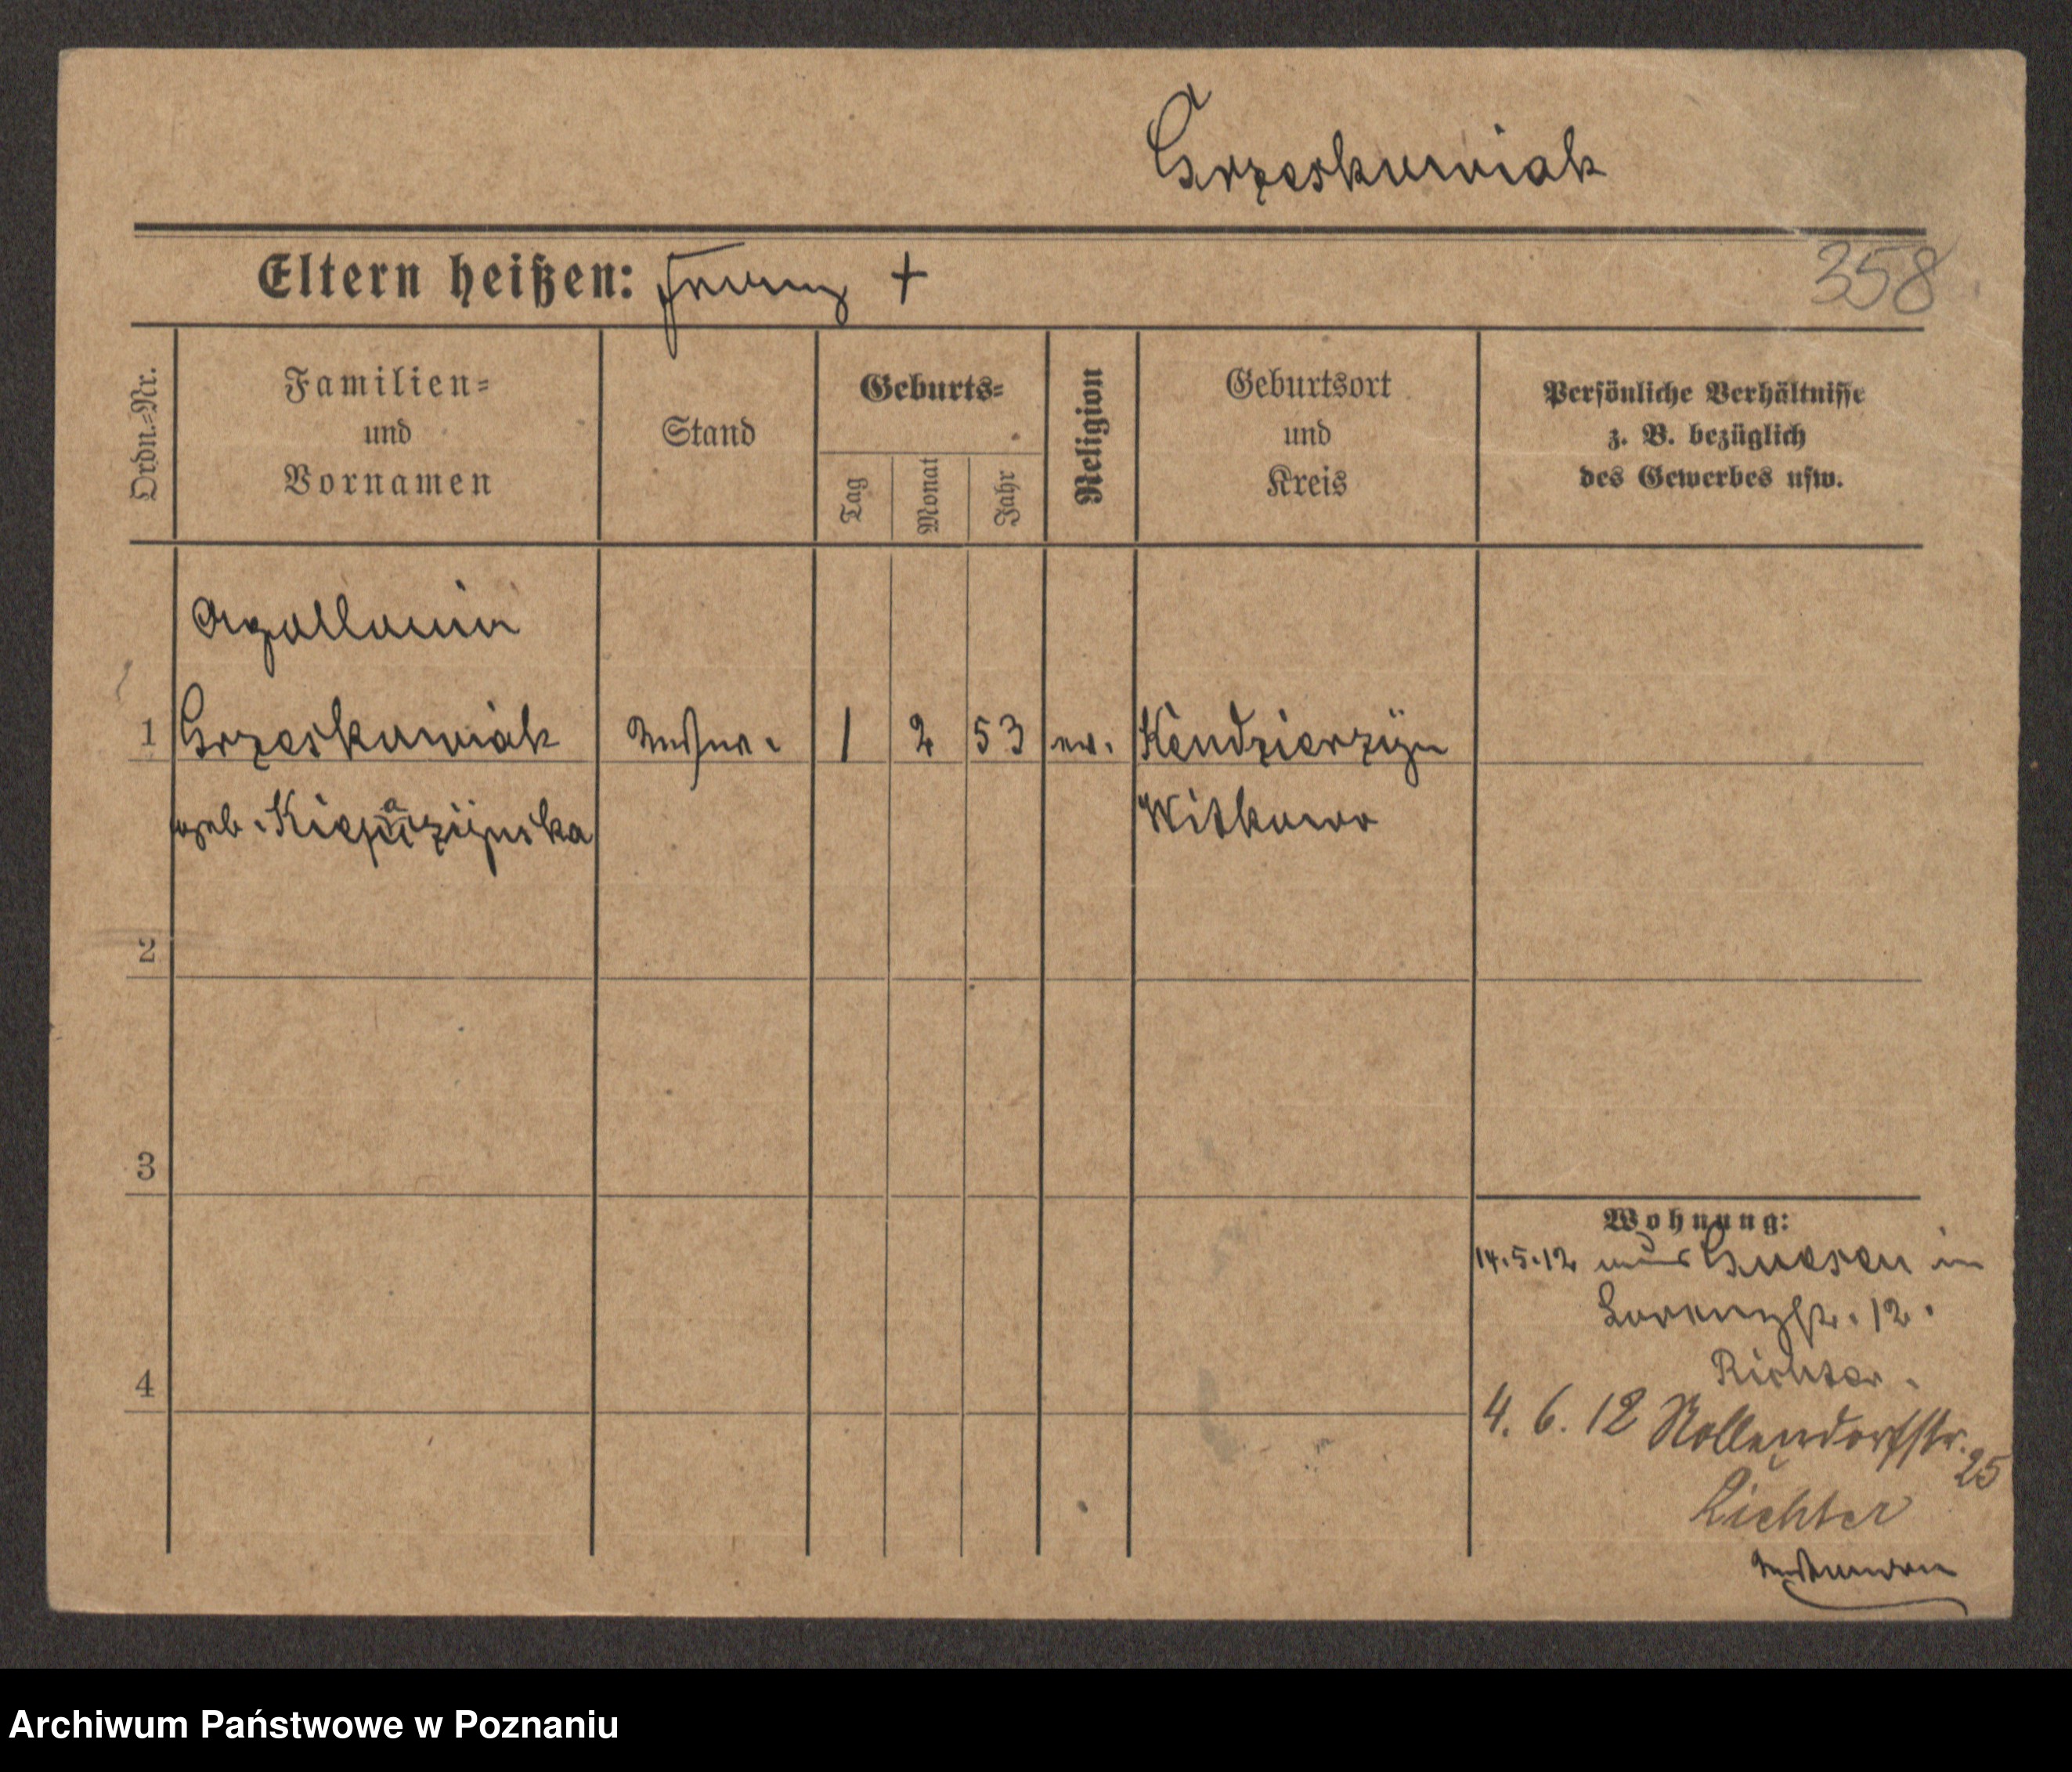 Grzeskowiak
Eltern heißen: Franz +
358
Ordn.=Nr.
Familien=
und
Vornamen
Stand
Geburts=
Tag
Monat
Jahr
Religion
Geburtsort
und
Kreis
Persönliche Verhältnisse
z. B. bezüglich
des Gewerbes usw.
Apollonia
1 Grzeskowiak 1 2 53 Kendzierzyn
geb. Witkowo
2
3
4
Wohnung:
14.5.12 aus Gnesen in
Lorenzstr. 12.
Richter.
4. 6. 12 Nollendorfstr.
25
Richter
Archiwum Państwowe w Poznaniu